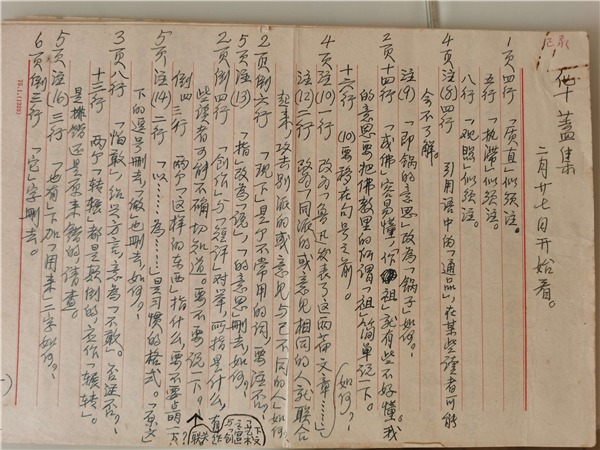 华盖集
二月廿七日开始看。
1页四行「质直」似须注。
五行「执滞」似须注。
八行「观照」似须注。
4页注(8)四行 引用语中的「通品」，在某些读者可能
会不了解。
注(9)「即锅的意思」改为「锅子」如何？
2页十四行「成佛」容易懂，「作祖」就有些不好懂。我
的意思要把佛教里的所谓「祖」简单说一下。
十六行 (10)要移在句号之前。
4页注(10)一行 改为「鲁迅发表了这两篇文章……」（如何？）
注(12)二行 改为「同派的或意见相同的人就联合
起来，攻击别派的或意见与己不同的人」如何
2页倒六行「现下」是个不常用的词，要注不？
5页注(13)「指」改为「说」，「的意思」删去，如何？
2页倒四行「创作」与「短评」对举，所指是什么，有
些读者可能不确切知道。要不要说一下？
倒四三行 两个「这样的东西」指什么，要不要点明一下？
5页注(14)二行「以……为……」是习惯的格式。「原文」
下的逗号删去，「做」也删去，如何？
3页八行「怕敢」绍兴方言，意为「不敢」。否还否？
十三行 两个「转辗」都是颠倒的，应作「辗转」。
是排错还是原来错的，请查。
5页注(16)三行「也有」下加「用来」二字如何？
6页倒三行「它」字删去。